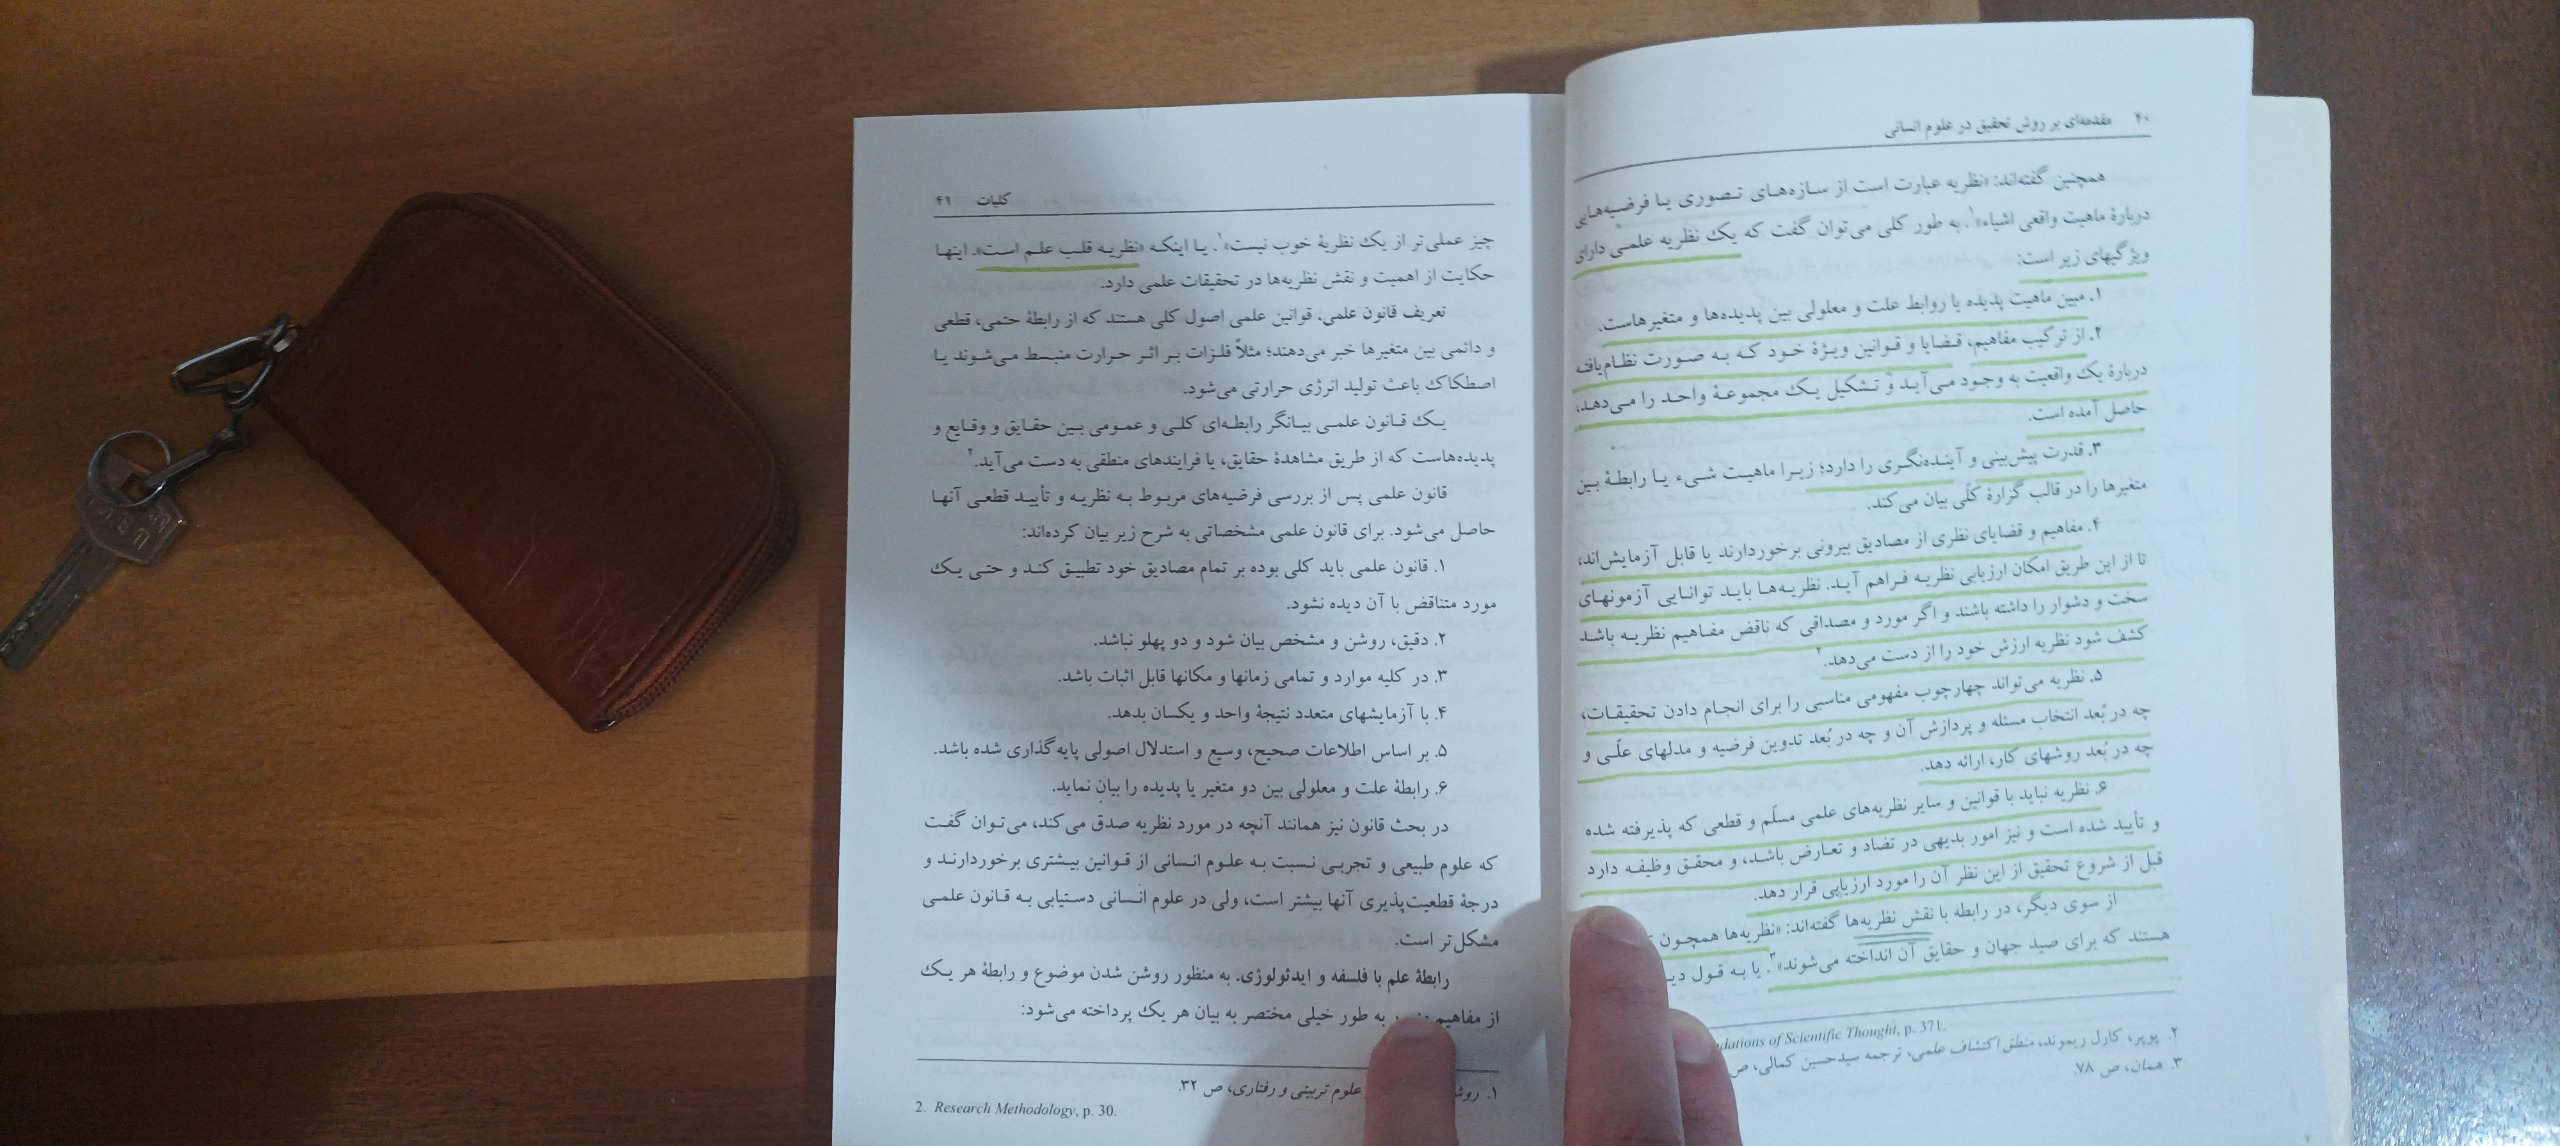 ۴۰ مقدمه‌ای بر روش تحقیق در علوم انسانی
همچنین گفته‌اند: «نظریه عبارت است از سازه‌های تصوری یا فرضیه‌هایی
دربارهٔ ماهیت واقعی اشیاء»۱. به طور کلی می‌توان گفت که یک نظریه علمی دارای
ویژگیهای زیر است:
۱. مبین ماهیت پدیده یا روابط علت و معلولی بین پدیده‌ها و متغیرهاست.
۲. از ترکیب مفاهیم، قضایا و قوانین ویژهٔ خود که به صورت نظام‌یافته
دربارهٔ یک واقعیت به وجود می‌آید و تشکیل یک مجموعهٔ واحد را می‌دهد،
حاصل آمده است.
۳. قدرت پیش‌بینی و آینده‌نگری را دارد؛ زیرا ماهیت شیء یا رابطهٔ بین
متغیرها را در قالب گزارهٔ کلّی بیان می‌کند.
۴. مفاهیم و قضایای نظری از مصادیق بیرونی برخوردارند یا قابل آزمایش‌اند،
تا از این طریق امکان ارزیابی نظریه فراهم آید. نظریه‌ها باید توانایی آزمونهای
سخت و دشوار را داشته باشند و اگر مورد و مصداقی که ناقض مفاهیم نظریه باشد
کشف شود نظریه ارزش خود را از دست می‌دهد.۲
۵. نظریه می‌تواند چهارچوب مفهومی مناسبی را برای انجام دادن تحقیقات،
چه در بُعد انتخاب مسئله و پردازش آن و چه در بُعد تدوین فرضیه و مدلهای علّی و
چه در بُعد روشهای کار، ارائه دهد.
۶. نظریه نباید با قوانین و سایر نظریه‌های علمی مسلّم و قطعی که پذیرفته شده
و تأیید شده است و نیز امور بدیهی در تضاد و تعارض باشد، و محقق وظیفه دارد
قبل از شروع تحقیق از این نظر آن را مورد ارزیابی قرار دهد.
از سوی دیگر، در رابطه با نقش نظریه‌ها گفته‌اند: «نظریه‌ها همچون
هستند که برای صید جهان و حقایق آن انداخته می‌شوند»۳. یا به قول
of Scientific Thought, p. 371.
۲. پوپر، کارل ریموند، منطق اکتشاف علمی، ترجمه سیدحسین کمالی، ص
۳. همان، ص ۷۸.
کلیات ۴۱
چیز عملی‌تر از یک نظریهٔ خوب نیست»۱. یا اینکه «نظریه قلب علم است». اینها
حکایت از اهمیت و نقش نظریه‌ها در تحقیقات علمی دارد.
تعریف قانون علمی. قوانین علمی اصول کلی هستند که از رابطهٔ حتمی، قطعی
و دائمی بین متغیرها خبر می‌دهند؛ مثلاً فلزات بر اثر حرارت منبسط می‌شوند یا
اصطکاک باعث تولید انرژی حرارتی می‌شود.
یک قانون علمی بیانگر رابطه‌ای کلی و عمومی بین حقایق و وقایع و
پدیده‌هاست که از طریق مشاهدهٔ حقایق، یا فرایندهای منطقی به دست می‌آید.۲
قانون علمی پس از بررسی فرضیه‌های مربوط به نظریه و تأیید قطعی آنها
حاصل می‌شود. برای قانون علمی مشخصاتی به شرح زیر بیان کرده‌اند:
۱. قانون علمی باید کلی بوده بر تمام مصادیق خود تطبیق کند و حتی یک
مورد متناقض با آن دیده نشود.
۲. دقیق، روشن و مشخص بیان شود و دو پهلو نباشد.
۳. در کلیه موارد و تمامی زمانها و مکانها قابل اثبات باشد.
۴. با آزمایشهای متعدد نتیجهٔ واحد و یکسان بدهد.
۵. بر اساس اطلاعات صحیح، وسیع و استدلال اصولی پایه‌گذاری شده باشد.
۶. رابطهٔ علت و معلولی بین دو متغیر یا پدیده را بیان نماید.
در بحث قانون نیز همانند آنچه در مورد نظریه صدق می‌کند، می‌توان گفت
که علوم طبیعی و تجربی نسبت به علوم انسانی از قوانین بیشتری برخوردارند و
درجهٔ قطعیت‌پذیری آنها بیشتر است، ولی در علوم انسانی دستیابی به قانون علمی
مشکل‌تر است.
رابطهٔ علم با فلسفه و ایدئولوژی. به منظور روشن شدن موضوع و رابطهٔ هر یک
از مفاهیم به طور خیلی مختصر به بیان هر یک پرداخته می‌شود:
۱. علوم تربیتی و رفتاری، ص ۳۲.
2. Research Methodology, p. 30.